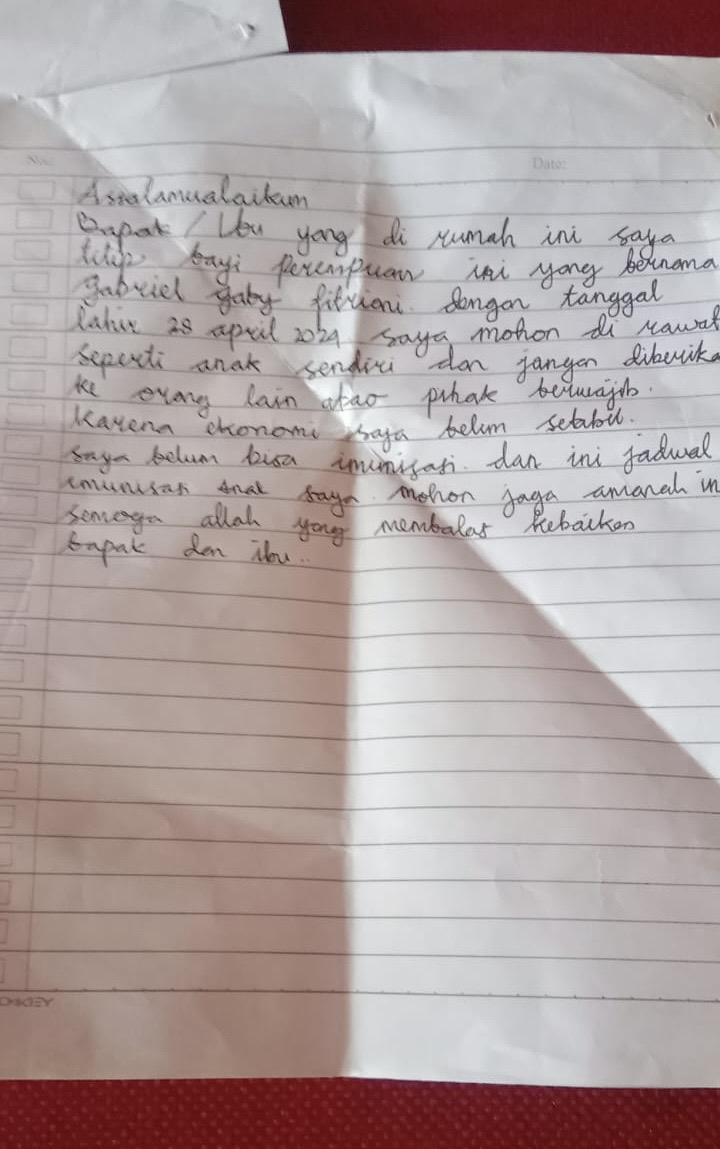 No:
Date:
Assalamualaikum
Bapak / Ibu yang di rumah ini saya
titip bayi perempuan ini yang bernama
gabriel gaby fitriani. dengan tanggal
lahir 28 april 2024 saya mohon di rawat
seperti anak sendiri dan jangan diberika
ke orang lain atao pihak berwajib.
Karena ekonomi saya belum setabil.
saya belum bisa imunisasi. dan ini jadwal
imunisasi anak saya. mohon jaga amanah in
semoga allah yang membalas kebaikan
bapak dan ibu..